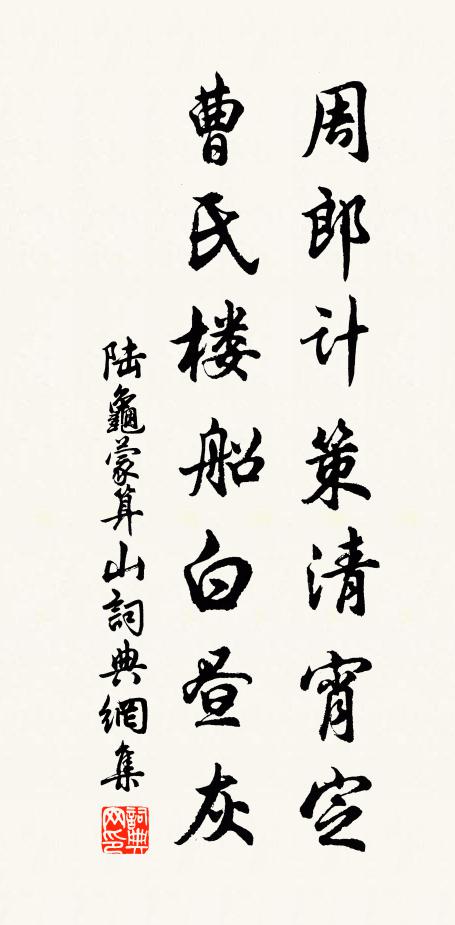 周郎计策清宵定
曹氏楼船白昼灰
陆龜蒙算山詞典網集
詞典网印